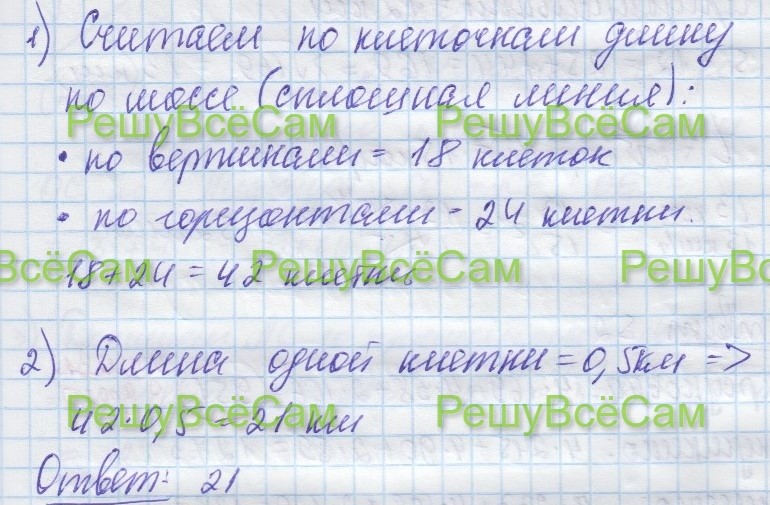 1) Считаем по клеточкам длину
по шоссе (сплошная линия):
РешуВсёСам РешуВсёСам
• по вертикали = 18 клеток
• по горизонтали - 24 клетки.
ВсёСам РешуВсёСам РешуВсё
18+24 = 42 клетки
2) Длина одной клетки = 0,5км =>
РешуВсёСам РешуВсёСам
42·0,5 = 21 км
Ответ: 21